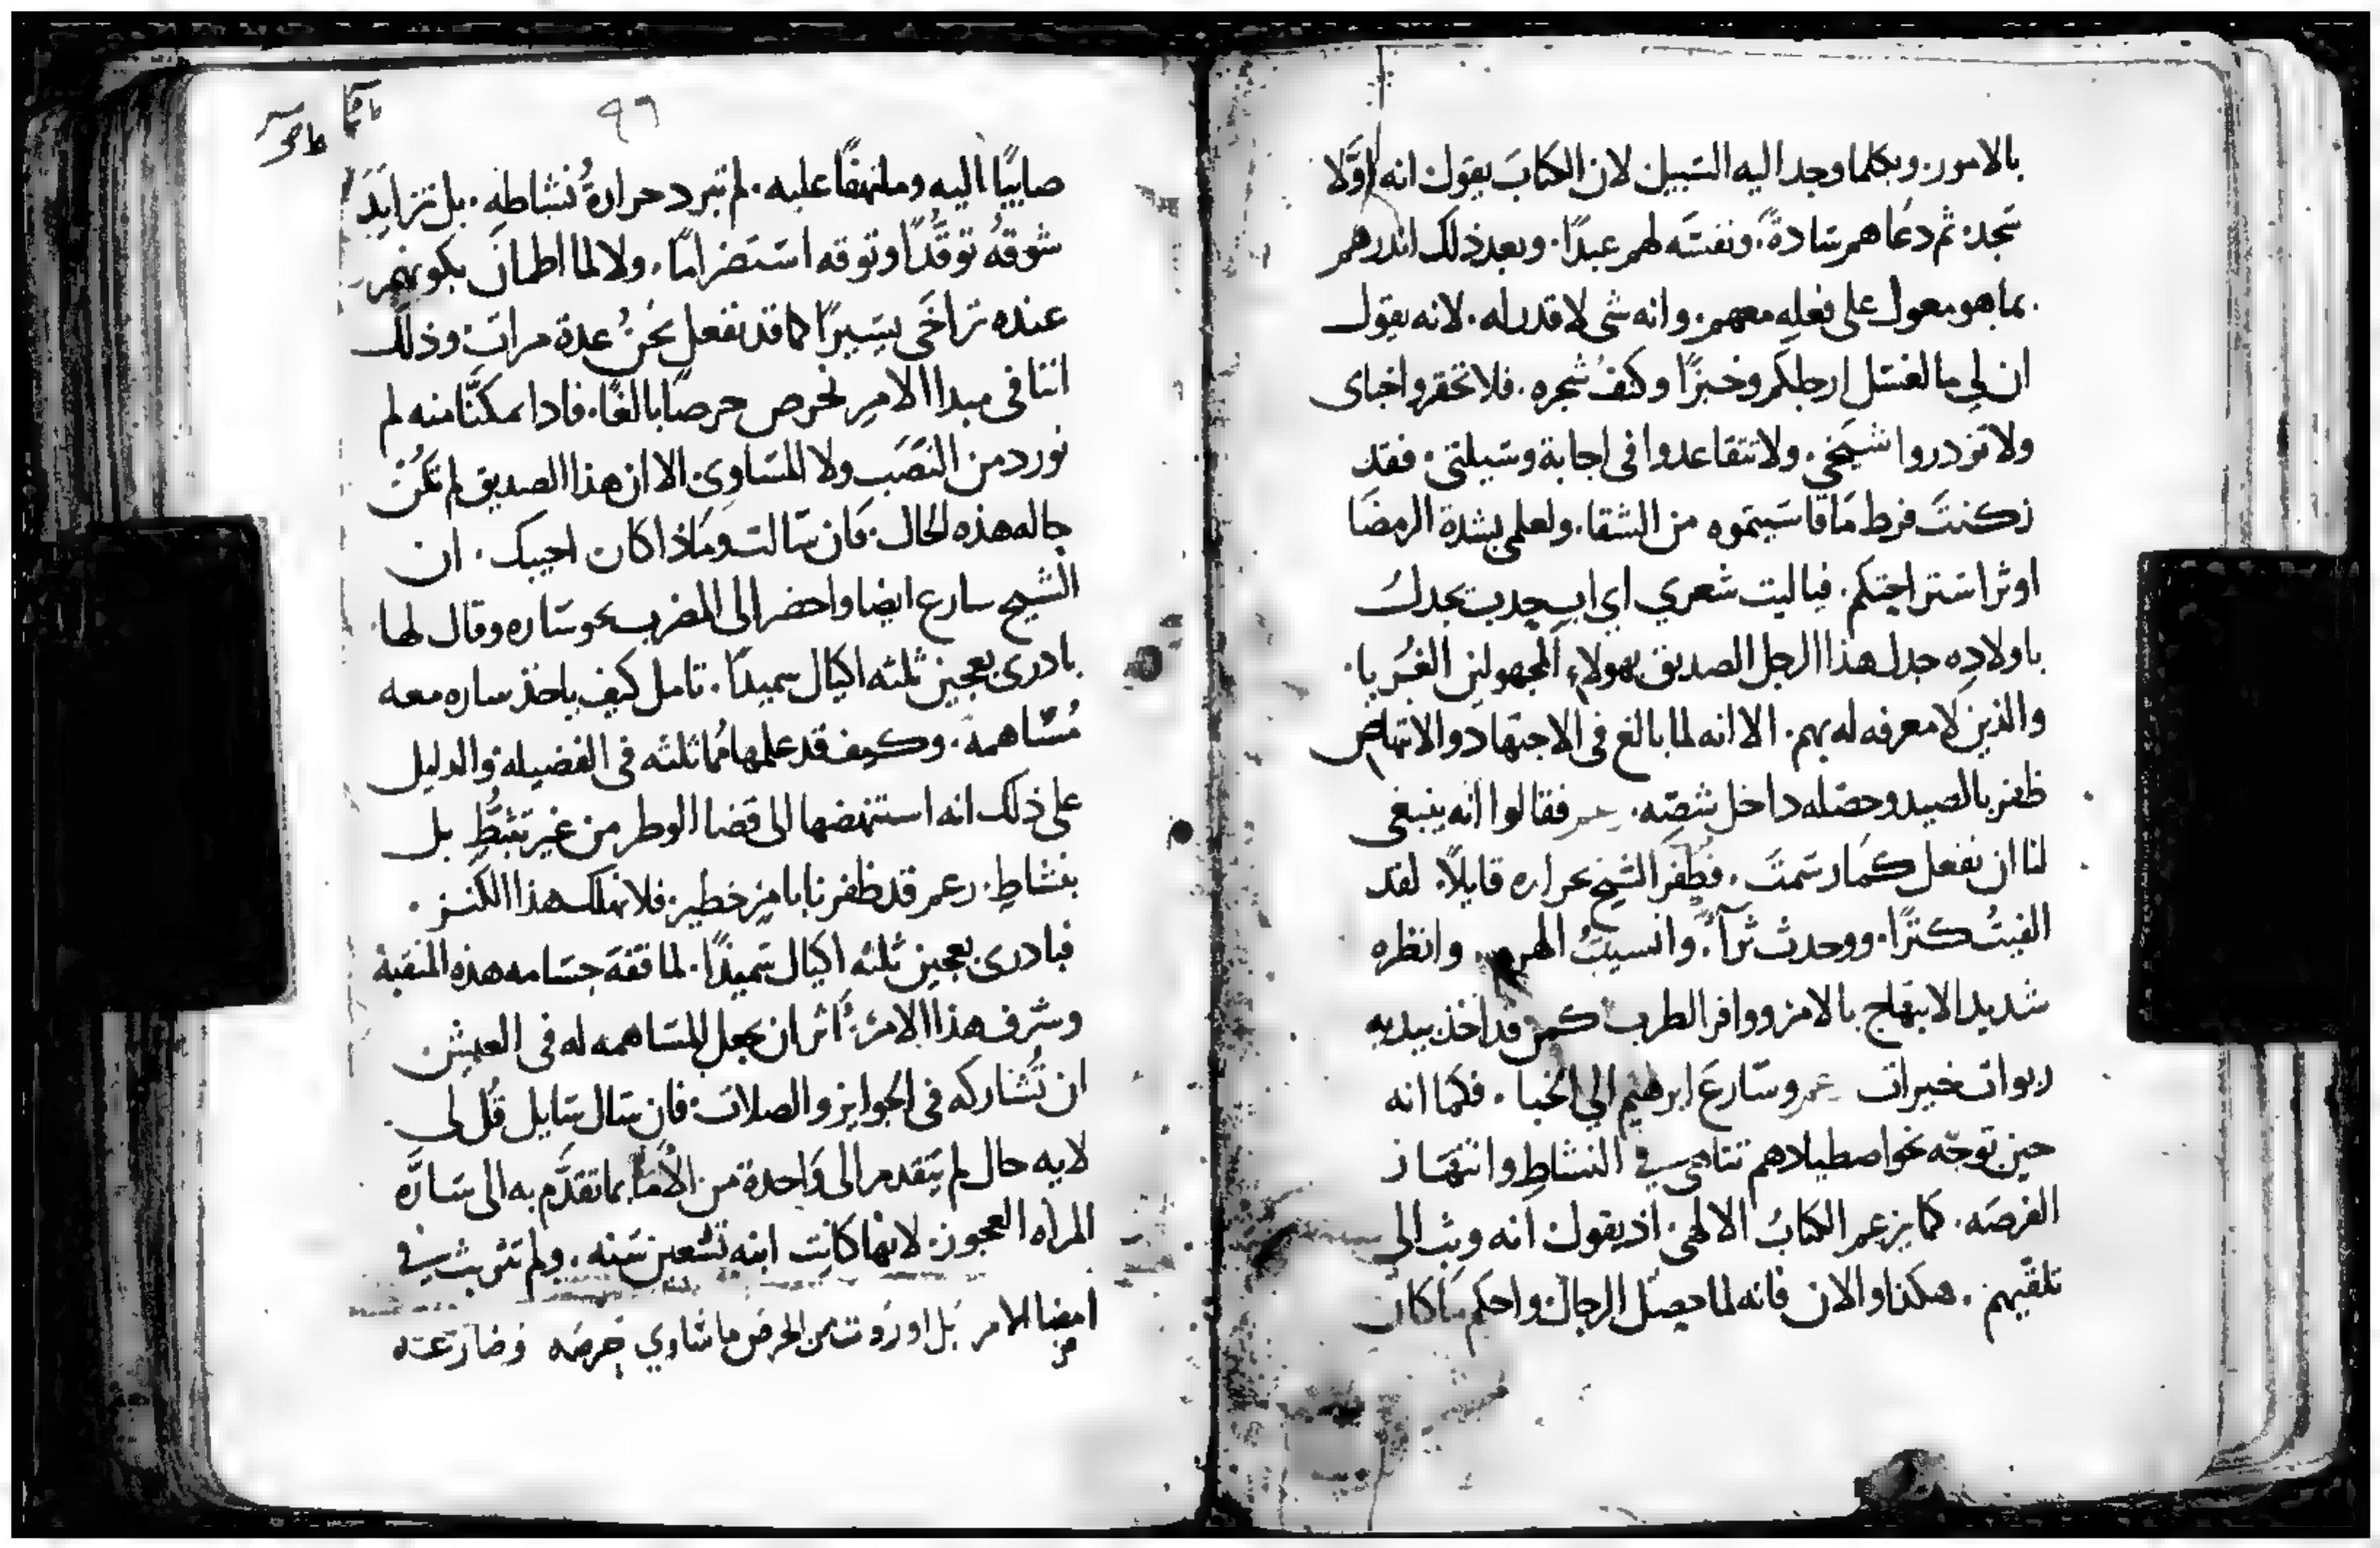 بالامور. وبكلما وجد اليه السبيل لان الكتابَ يقول انه اوَّلا
سَجد: ثم دعَاهم سَادةً. ونفسَه لهم عبدًا. وبعد ذلك انذرهم
بما هو معول على فعلِه معهم. وانه شى لا قدر له. لانه يقول
ان لي ما لغسَل ارجلكم وخبزًا وكنفُ شجره. فلا تحقروا خباى
ولا تزدروا شيخي. ولا تتقاعدوا فى اجابة وسَيلتى. فقد
زكنتَ فرط مَا قاسَيتموه من الشقا. ولعلمي بشدة الرمضَا
اوثر استراحتكم. فيا ليت شعري اي اب حِدب يجدلُ
باولادِه جدل هذا الرجل الصديق بهولاءِ المجهولين الغُربا.
والذين لا معرفه له بهم. الا انه لما بالغ فى الاجتهاد والانتهاض
ظفر بالصيد وحصّله داخل شصّه. فقالوا انه ينبغى
لنا ان نفعل كمَا رسَمتَ. فطفرَ الشيخ قايلاً. لقد
الفيتُ كنزًا. ووجدت ثرآً. وانسيتُ الهرم. وانظره
شديد الابتهاج بالامر ووافر الطرب كمن قد اخذ بيديه
ربوات خيرات وسَارعَ ابرهيم الي الخبا. فكما انه
حين توجّه نحو اصطيادهم تناهى في النشاطِ وانتهَاز
الفرصَه. كما يزعم الكتابُ الالهى. اذ يقول انه وثب الى
تلقّيهم. هكذا والان فانه لما حصل الرجال واحكم ما كان
٩٦
صابيًا اليه وملتهفًا عليه. لم تبرد حرارةُ نشاطه. بل تزايَدَ
شوقهُ توقُّدًا وتوقه استضرامًا. ولا لما اطمان بكونهم
عنده تراخَى يسَيرًا كما قد نفعل نحنُ عدة مرات وذلك
اننا فى مبدا الامر نحرص حرصًا بالغًا. فاذا تمكنَّا منه لم
نورد من النَصَب ولا المسَاوى الا ان هذا الصديق لم تكُن
حاله هذه الحال. فان سَالت وماذا كان اجيبك. ان
الشيخ سارع ايضا واحضر الى المضرب نحو سَاره وقال لها.
بادرى بعجين ثلثه اكيال سميدًا. تامل كيف ياخذ ساره معه
مُسَاهمة. وكيف قد علمها مُماثلته فى الفضيله والدليل
على ذلك انه استنهضها الى قضا الوطر من غير تثبُّطٍ بل
بنشاطٍ. زعم قد ظفرنا بامرٍ خطير. فلا نهلك هذا الكنز.
فبادرى بعجين ثلثه اكيال سَميذًا. لما فقه جسَامه هذه المنقبة
وشرف هذا الامر. اثر ان يجعل المسَاهمه له فى العيش
ان تُشاركه فى الجوايز والصلات. فان سَال سَايل قُل لي
لايه حال لم يَتقدم الى وَاحدة من الاُمَا بما تقدَّم به الى سَارَّه
المراه العجوز. لانها كانت ابنه تسعين سَنه. ولم تتريث في
امضا الامر بل اوردت من الحرص ما سَاوي حرصَه وضارَعته